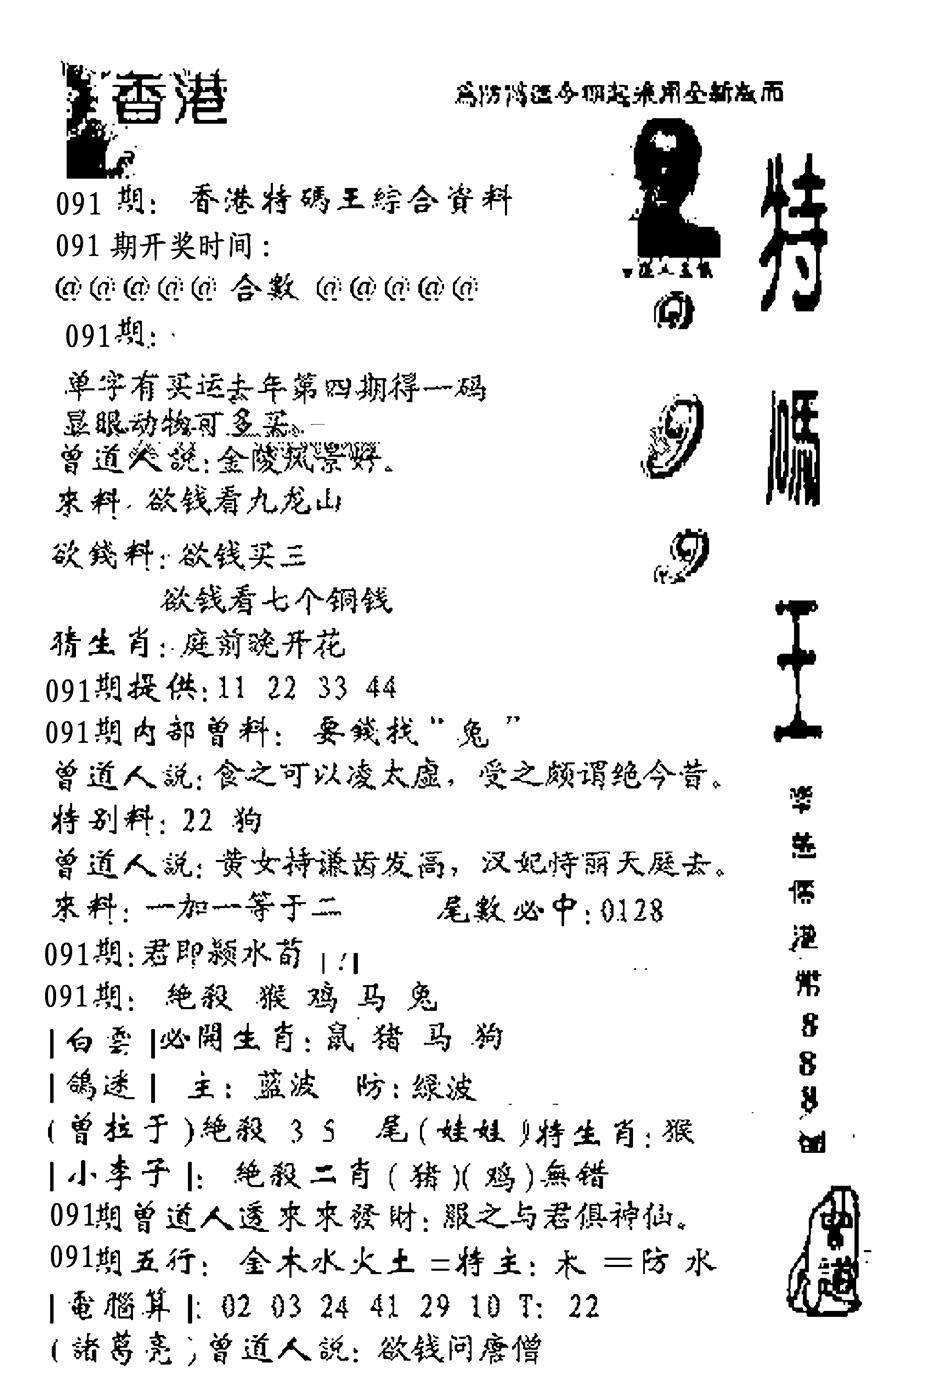 香港
為防鴻溫今期起采用全新版面
091 期: 香港特碼王綜合資料
091 期开奖时间:
@@@@@ 合數 @@@@@
091期:
单字有买运去年第四期得一码
显眼动物可多买。
曾道人説:金陵风景好。
來料: 欲钱看九龙山
欲錢料:欲钱买三
欲钱看七个铜钱
猜生肖:庭前晚开花
091期提供:11 22 33 44
091期内部曾料: 要錢找"兔"
曾道人説:食之可以凌太虚，受之颇谓绝今昔。
特别料:22 狗
曾道人説:黄女持谦齿发高，汉妃恃丽天庭去。
來料:一加一等于二 尾數必中:0128
091期:君即颍水荀
091期: 絶殺 猴 鸡 马 兔
|白雲|必開生肖:鼠 猪 马 狗
|鴿迷| 主: 蓝波 防:绿波
(曾拉于)絶殺 3 5 尾(娃娃)特生肖:猴
|小李子|: 絶殺二肖(猪)(鸡)無错
091期曾道人透來來發財:服之与君俱神仙。
091期五行: 金木水火土=特主:木 =防 水
|電腦算|: 02 03 24 41 29 10 T: 22
(諸葛亮)曾道人説:欲钱问唐僧
特
碼
王
港
888